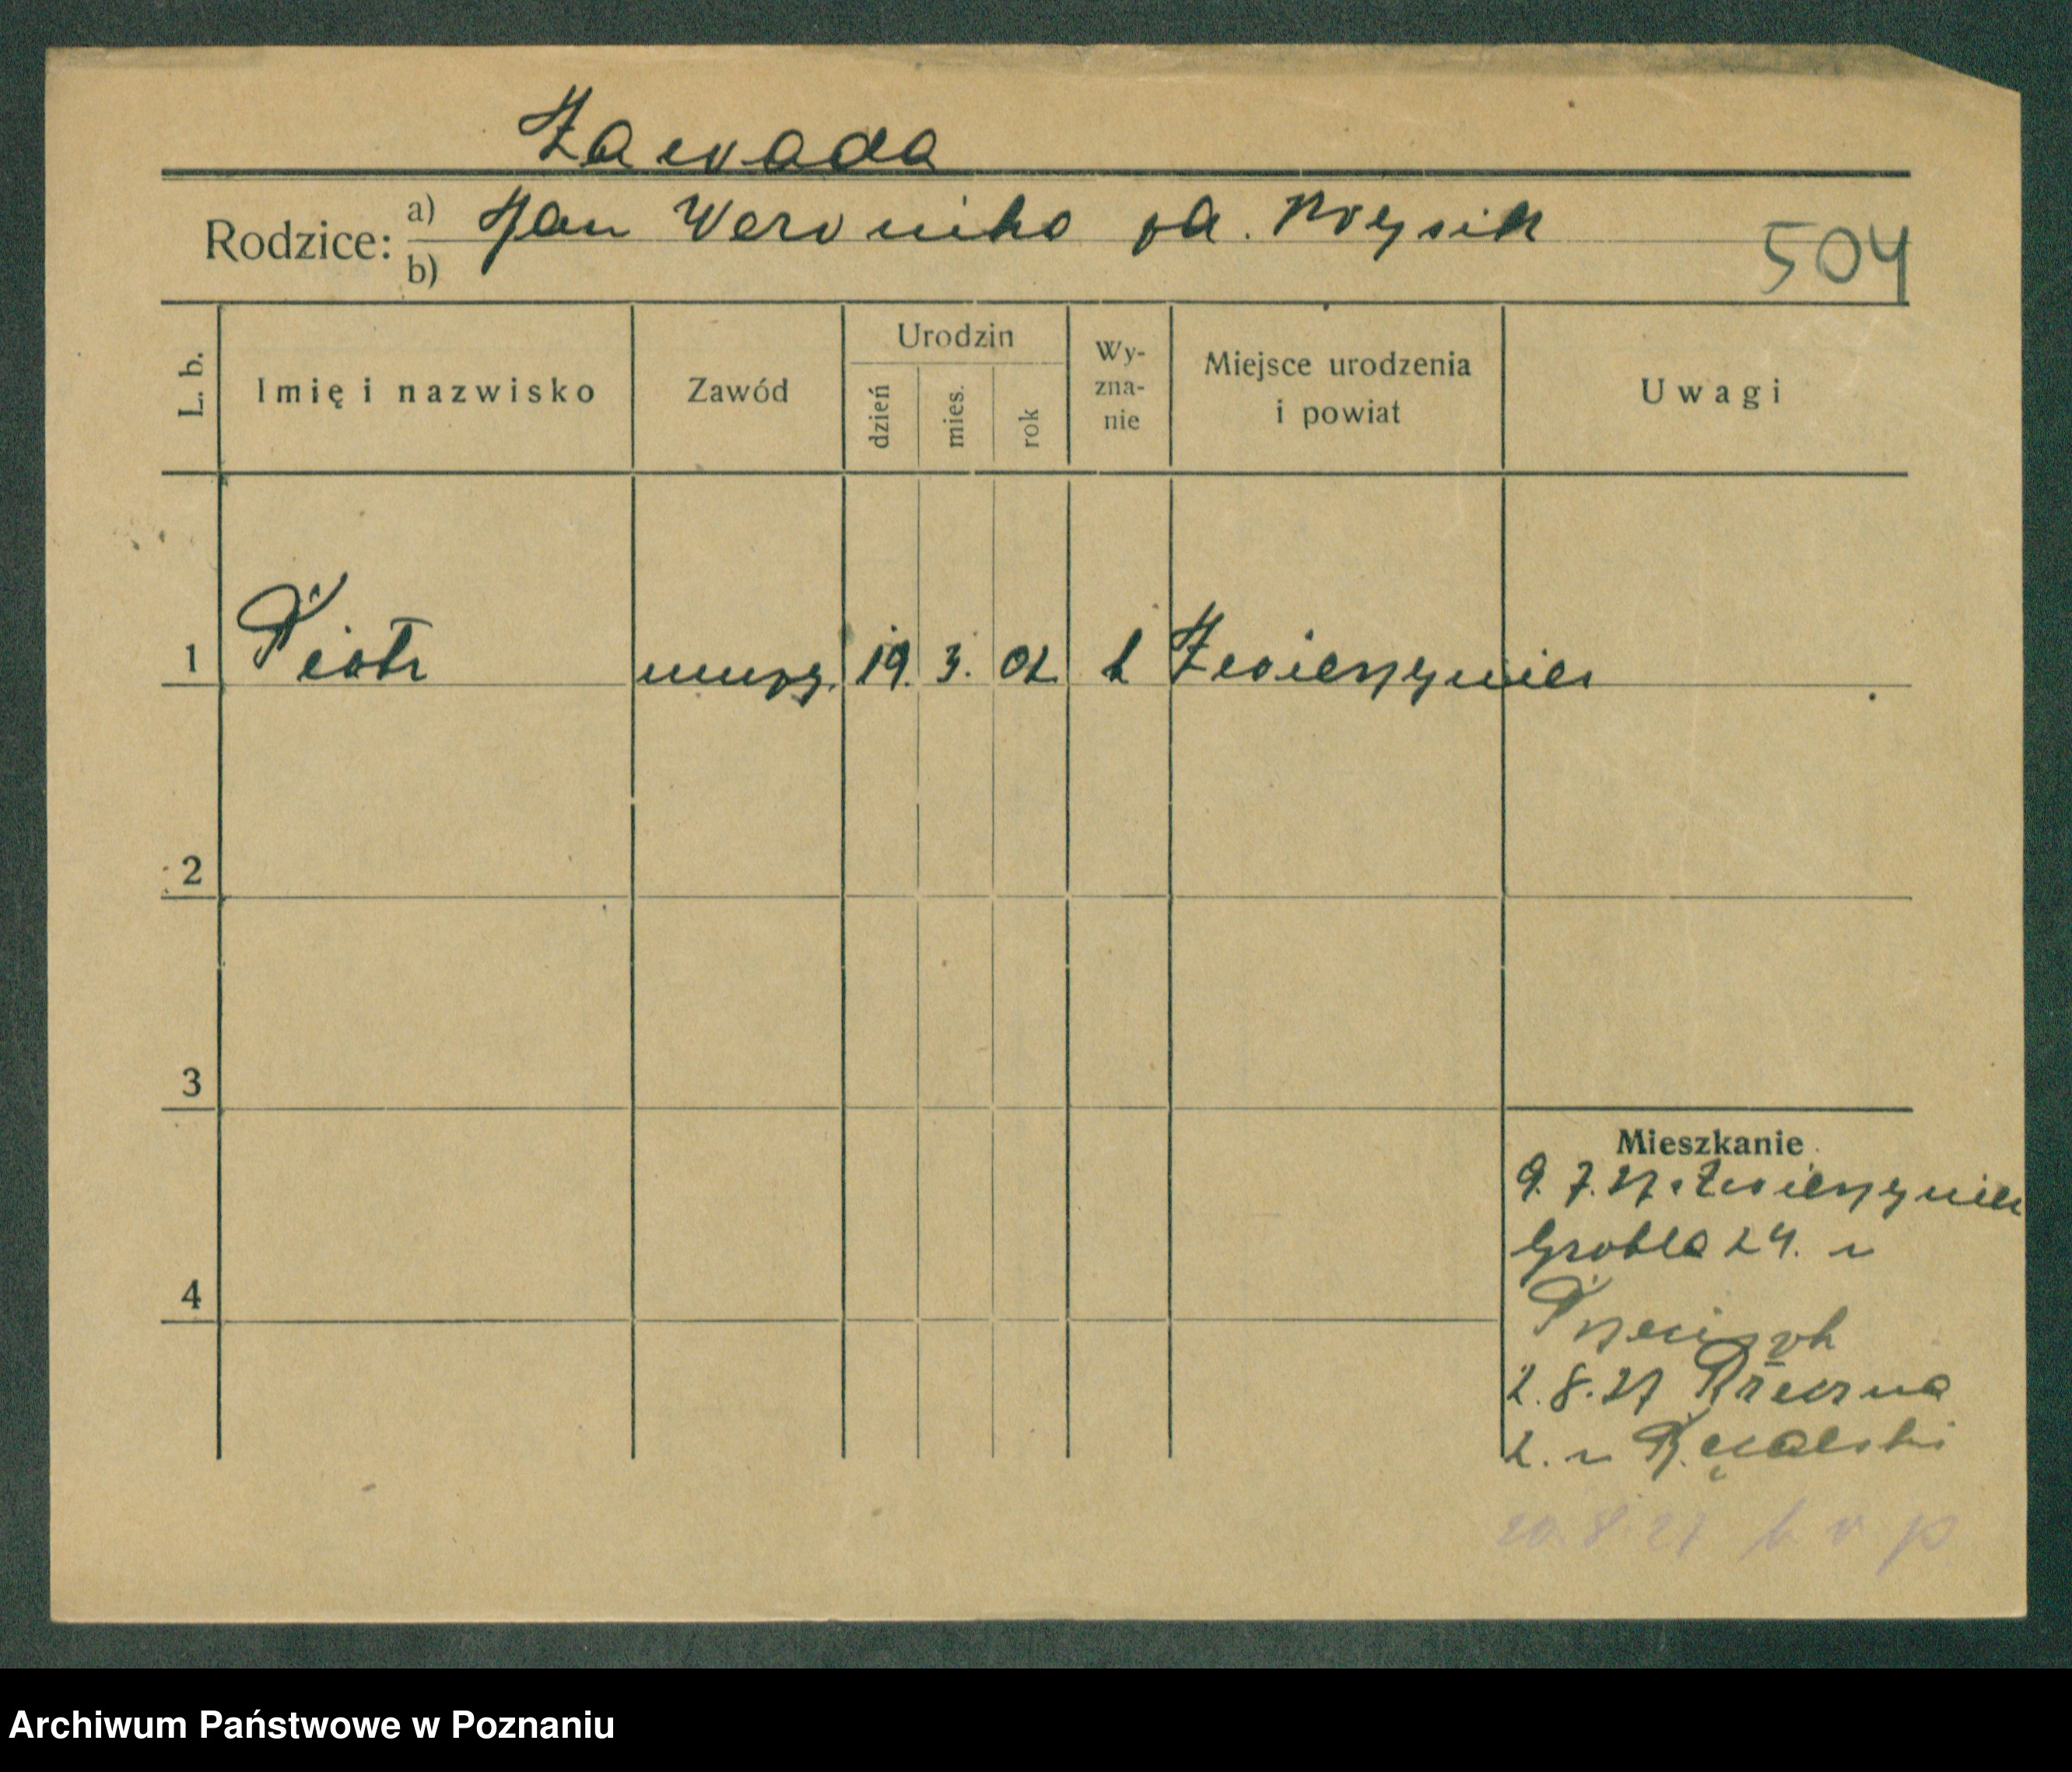 Zawada
Rodzice: a) Jan Weronika
b)
504
L. b.
Imię i nazwisko
Zawód
Urodzin
dzień
mies.
rok
Wy-
zna-
nie
Miejsce urodzenia
i powiat
Uwagi
1 Piotr murz. 19. 3. 02 k Zwierzyniec
2
3
4
Mieszkanie
9. 7. 27. Zwierzyniec
Grobla 24.
2. 8. 27
2.
20.8.27
Archiwum Państwowe w Poznaniu